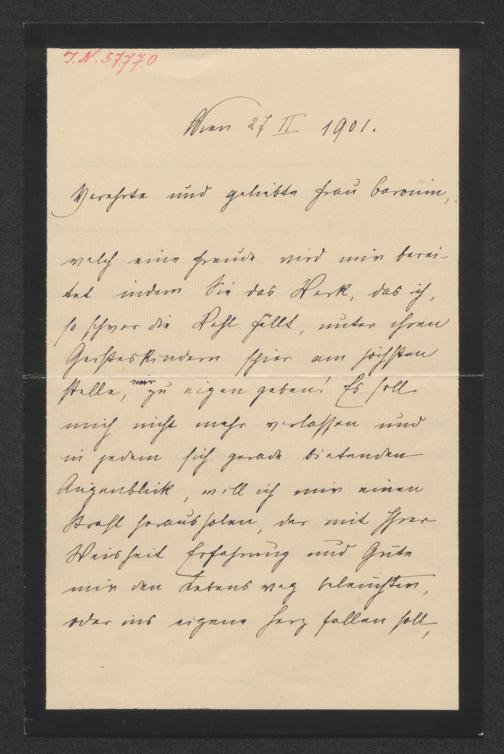 J.N. 57.770
Wien 27 II 1901.
Verehrte und geliebte Frau Baronin,
welch eine Freude wird mir berei-
tet indem Sie das Werk, das ich,
so schwer die Wahl fällt, unter ihren
Geisteskindern schier am höchsten
stelle, mir zu eigen geben! Es soll
mich nicht mehr verlassen und
in jedem sich gerade bietenden
Augenblick, will ich mir einen
Strahl herausholen, der mit Ihrer
Weisheit Erfahrung und Güte
mir den Lebensweg beleuchten,
oder ins eigene Herz fallen soll,